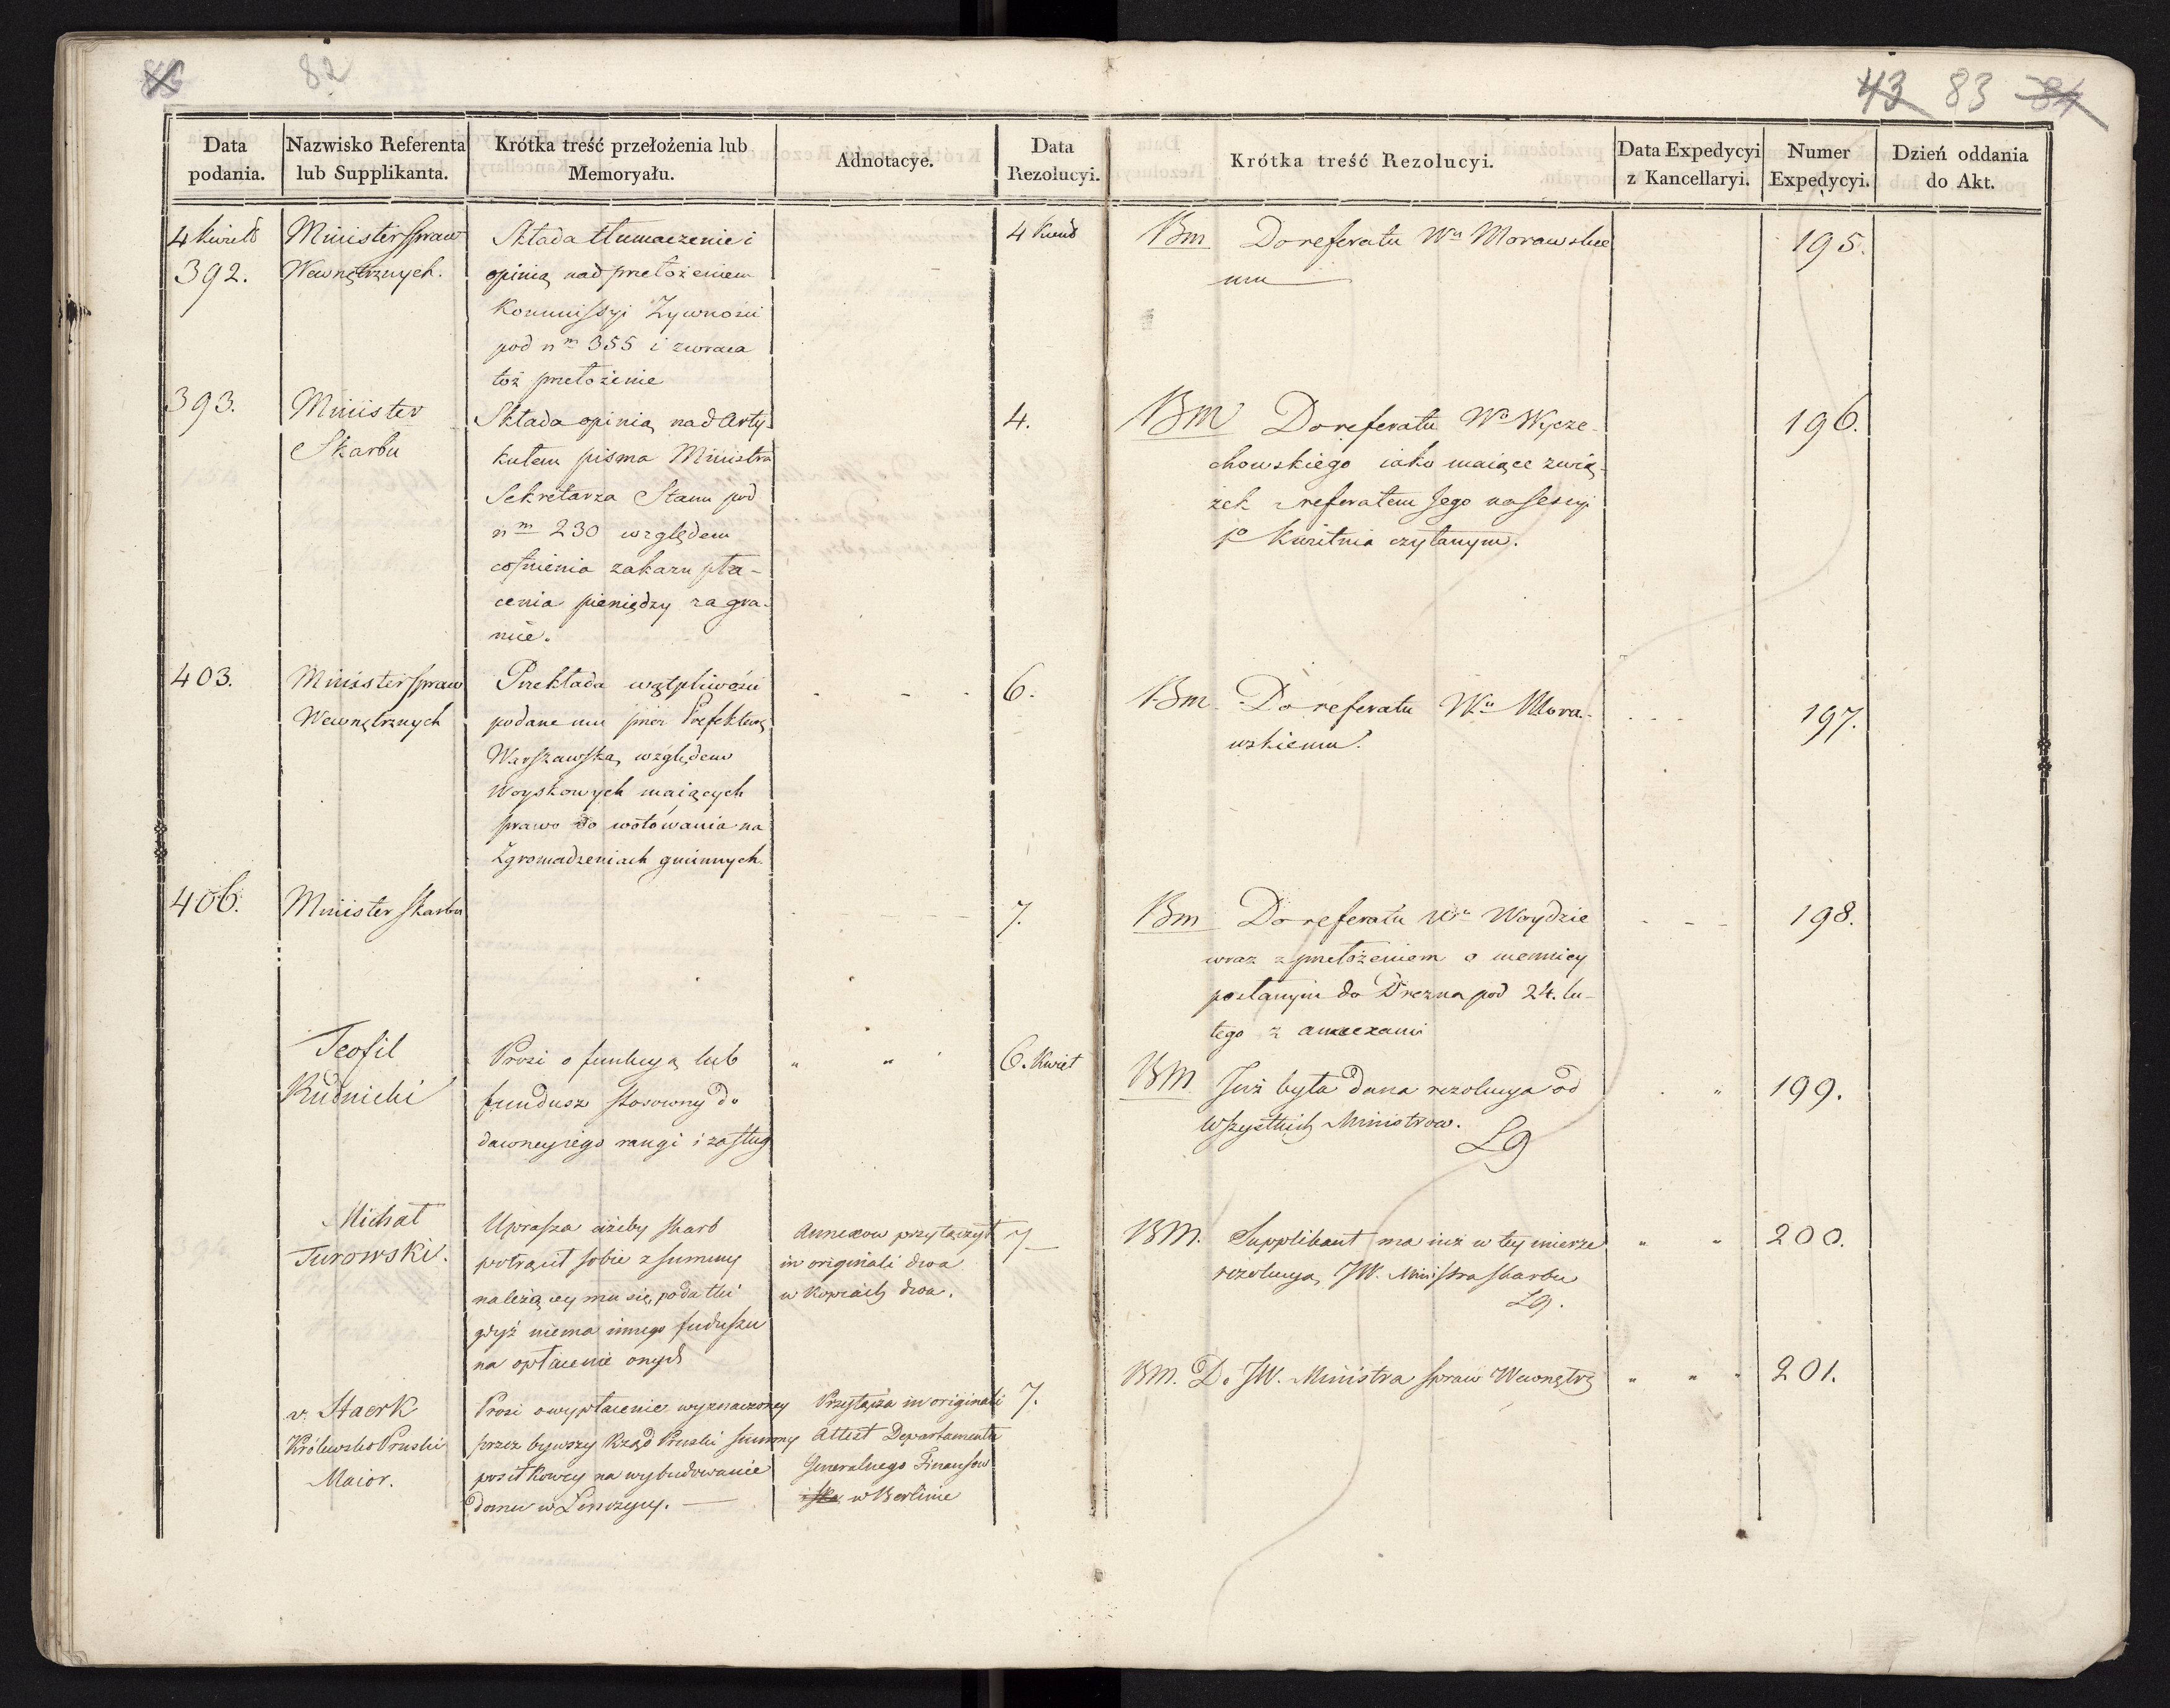 82
43 83 84
Data podania.
Nazwisko Referenta lub Supplikanta.
Krótka treść przełożenia lub Memoryału.
Adnotacye.
Data Rezolucyi.
Krótka treść Rezolucyi.
Data Expedycyi z Kancellaryi.
Numer Expedycyi.
Dzień oddania do Akt.
4 Kwiet
392.
Minister Spraw
Wewnętrznych.
Składa tłumaczenie i
opinią nad przełożeniem
Kommissyi Żywności
pod nm 355 i zwraca
toż przełożenie
4 Kwiet
Bm Do referatu Wu Morawskie
mu
195.
393.
Minister
Skarbu
Składa opinią nad Arty-
kułem pisma Ministra
Sekretarza Stanu pod
nm 230 względem
cofnienia zakazu pła-
cenia pieniędzy za gra-
nicę.
4.
BM Do referatu Wo Wycze-
chowskiego iako maiące zwią-
zek z referatem Jego na sessyi
1o Kwietnia czytanym.
196.
403.
Minister Spraw
Wewnętrznych
Przekłada wątpliwości
podane mu przez Prefekturę
Warszawską względem
Woyskowych maiących
prawo do wotowania na
Zgromadzeniach gminnych.
6.
Bm Do referatu Wu Mora-
wskiemu.
197.
406.
Minister Skarbu
7.
Bm Do referatu Wu Woydzie
wraz z przełożeniem o mennicy
posłanym do Drezna pod 24. lu-
tego z annexami
198.
Teofil
Rudnicki
Prosi o funkcyą lub
fundusz stosowny do
dawney iego rangi i zasług
6. Kwiet
BM Już była dana rezolucya od
Wszystkich Ministrow.
LG
199.
Michał
Turowski.
Uprasza ażeby skarb
potrącił sobie z summy
należącey mu się podatki
gdyż niema innego fuduszu
na opłacenie onych
Annexow przyłączył
in originali dwa
w kopiach dwa.
7
BM. Supplikant ma iuż w tey mierze
rezolucyą JW. Ministra Skarbu
LG.
200.
v. Staerk
Królewsko Pruski
Maior.
Prosi o wypłacenie wyznaczoney
przez bywszy Rząd Pruski summy
posiłkowey na wybudowanie
domu w Lenczycy.
Przyłącza in originali
Attest Departamentu
Generalnego Finansow
w Berlinie
7.
BM. Do JW. Ministra Spraw Wewnętrz
201.